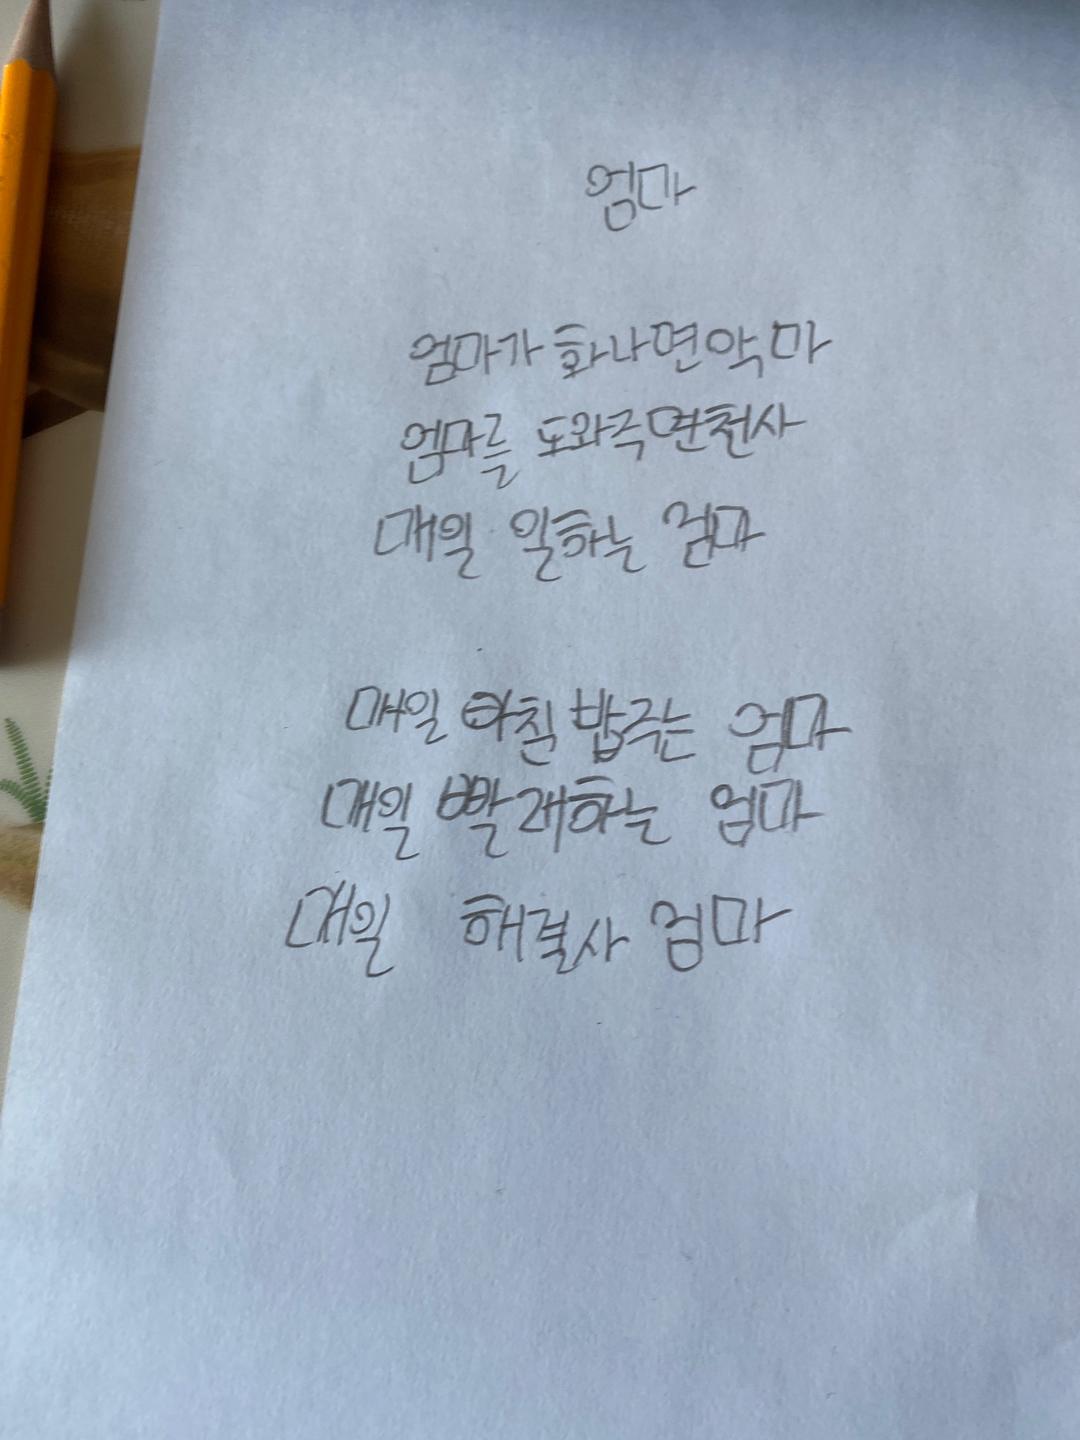 엄마
엄마가 화나면 악마
엄마를 도와주면 천사
매일 일하는 엄마
매일 아침 밥주는 엄마
매일 빨래하는 엄마
매일 해결사 엄마